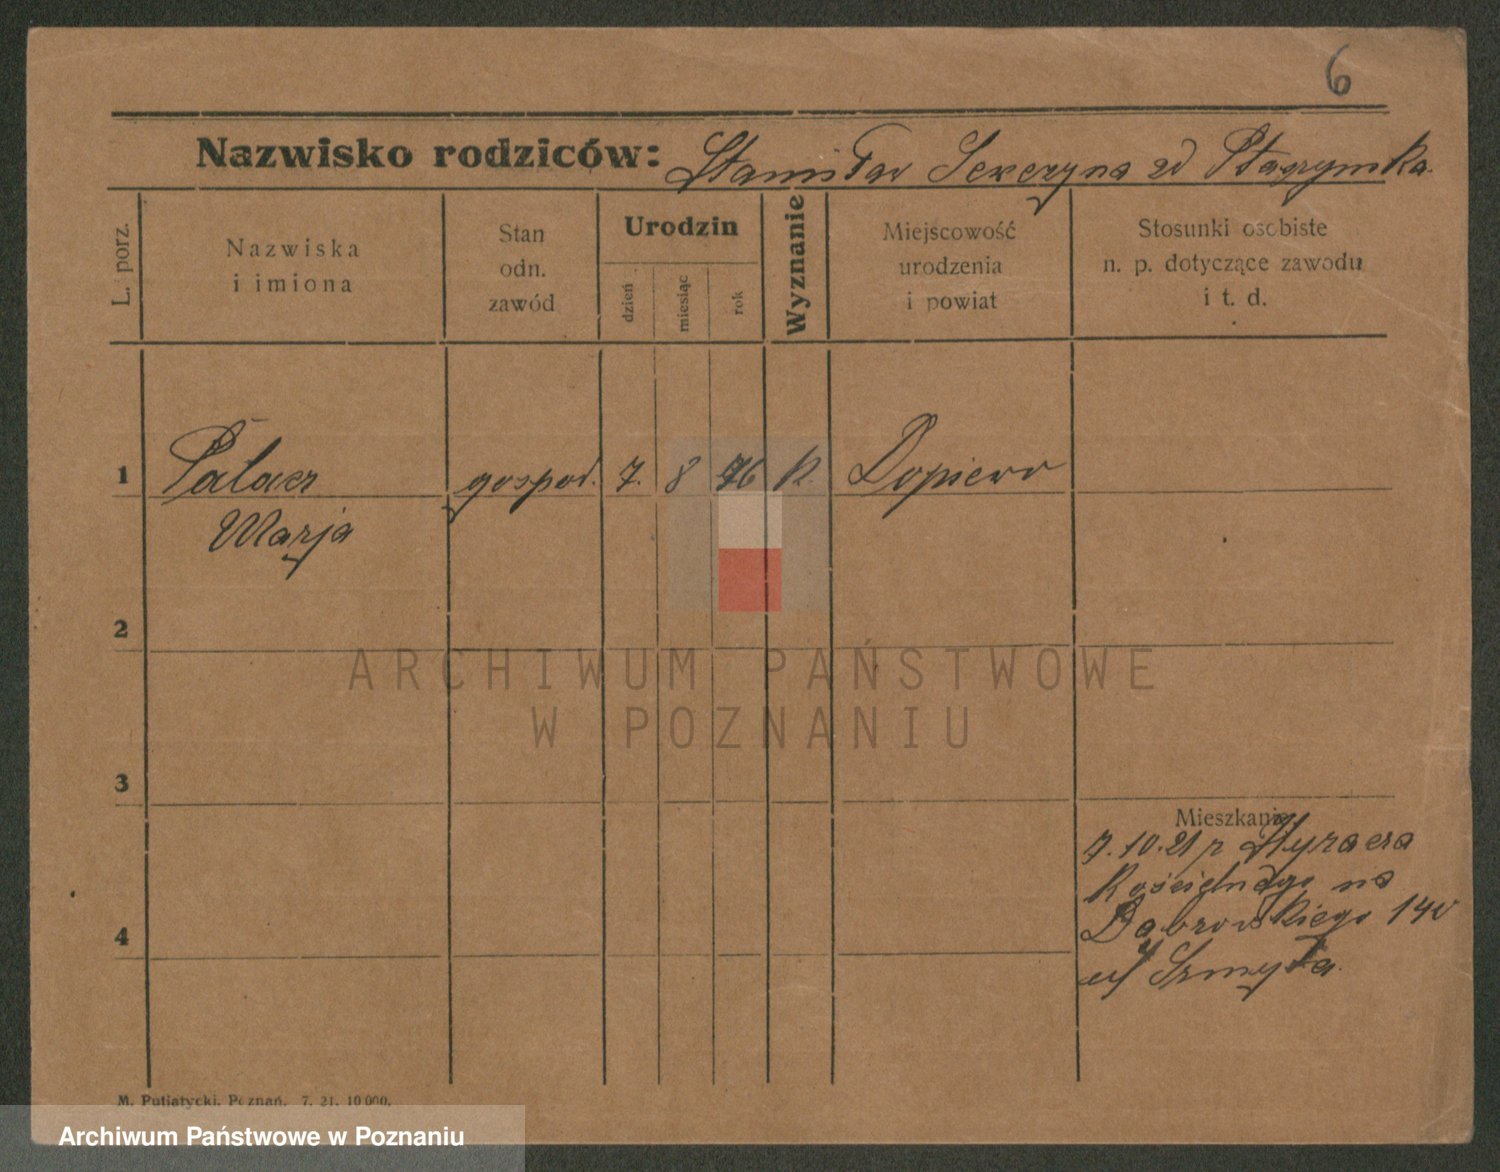 6
Nazwisko rodziców: Stanisław Seweryna zd
L. porz.
Nazwiska
i imiona
Stan
odn.
zawód
Urodzin
dzień
miesiąc
rok
Wyznanie
Miejscowość
urodzenia
i powiat
Stosunki osobiste
n. p. dotyczące zawodu
i t. d.
1
Pałacz gospod. 7. 8 76 k. Dopiewo
Marja
2
ARCHIWUM PAŃSTWOWE
W POZNANIU
3
Mieszkanie
7.10.21
na
Dąbrowskiego
4
u/ Szmyta.
M. Putiatycki, Poznań. 7. 21. 10 000.
Archiwum Państwowe w Poznaniu